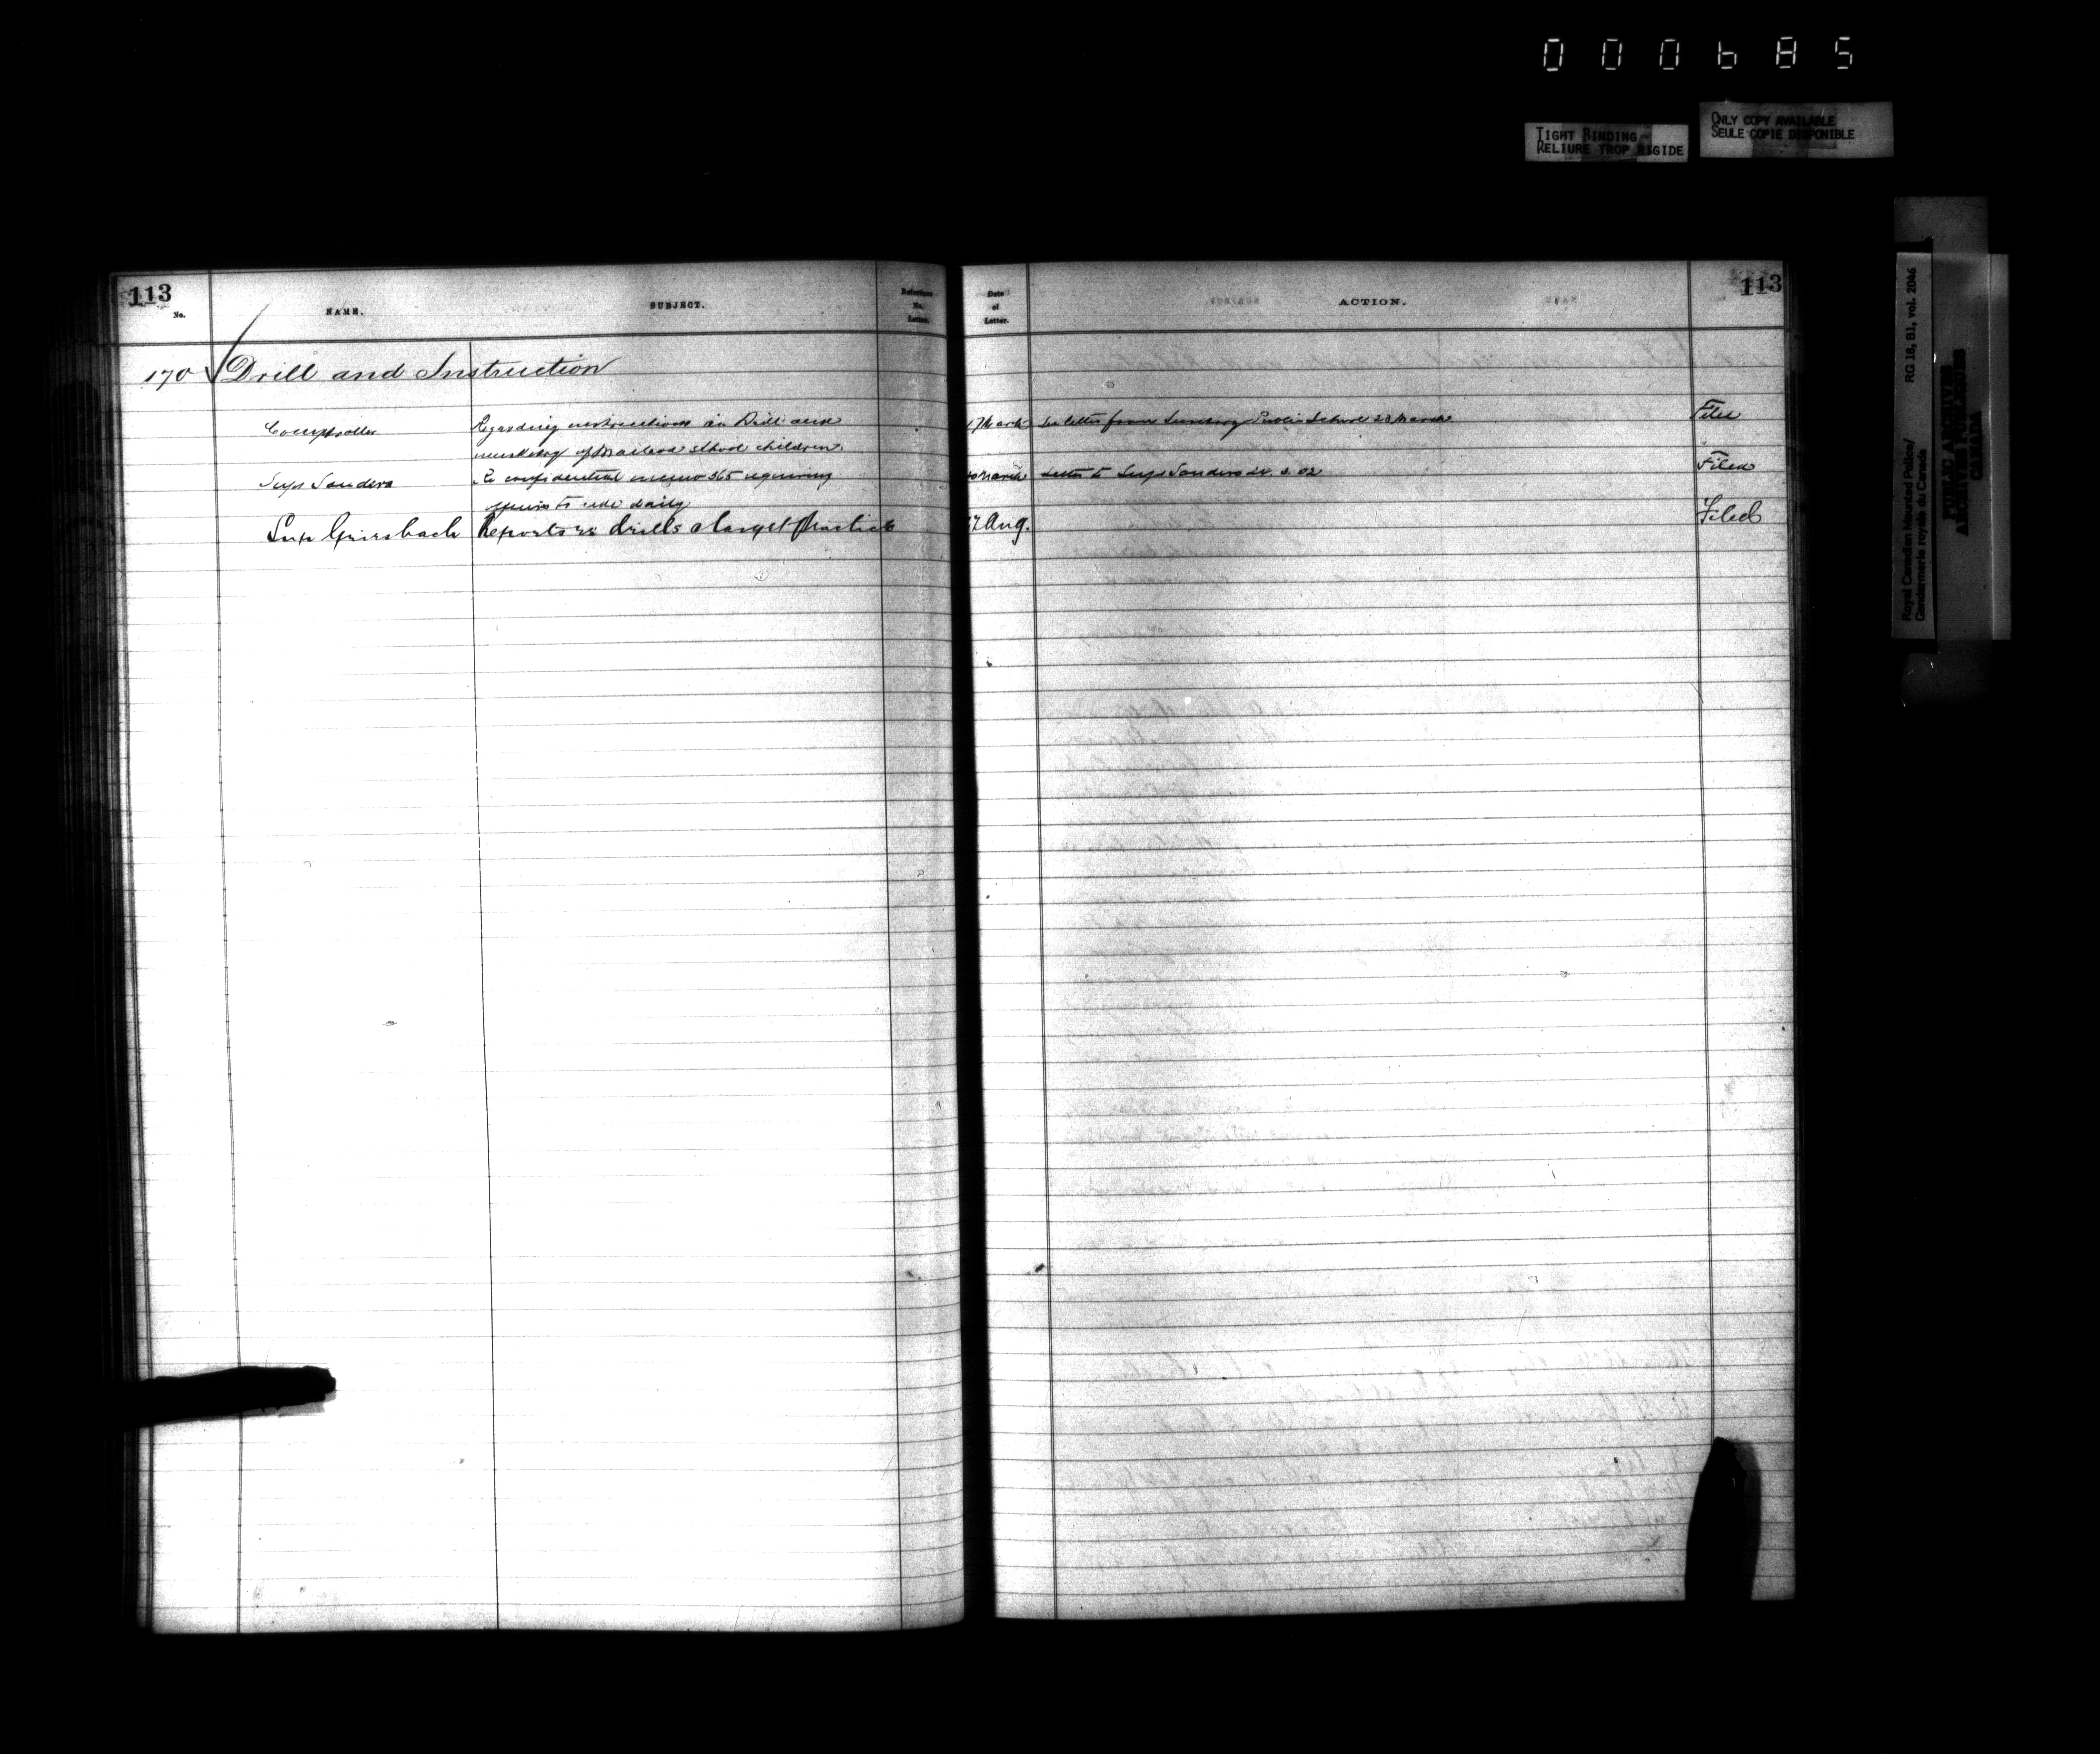 000685
TIGHT BINDING
RELIURE TROP RIGIDE
ONLY COPY AVAILABLE
SEULE COPIE DISPONIBLE
Royal Canadian Mounted Police/
Gendarmerie royale du Canada
RG 18, B1, vol. 2046
PUBLIC ARCHIVES
ARCHIVES PUBLIQUES
CANADA
113
No.
NAME.
SUBJECT.
Reference
No.
Letter.
Date
of
Letter.
ACTION.
113
170 Drill and Instruction
Comptroller Regarding instructions in Drill and 17 March See letter from Public School 23 March Filed
musketry of school children.
Sup Sanders Re confidential memo 365 requiring March Letter to Sup Sanders 02 Filed
to ride daily
Sup Griesbach Reports re drills & target practice 27 Aug. Filed